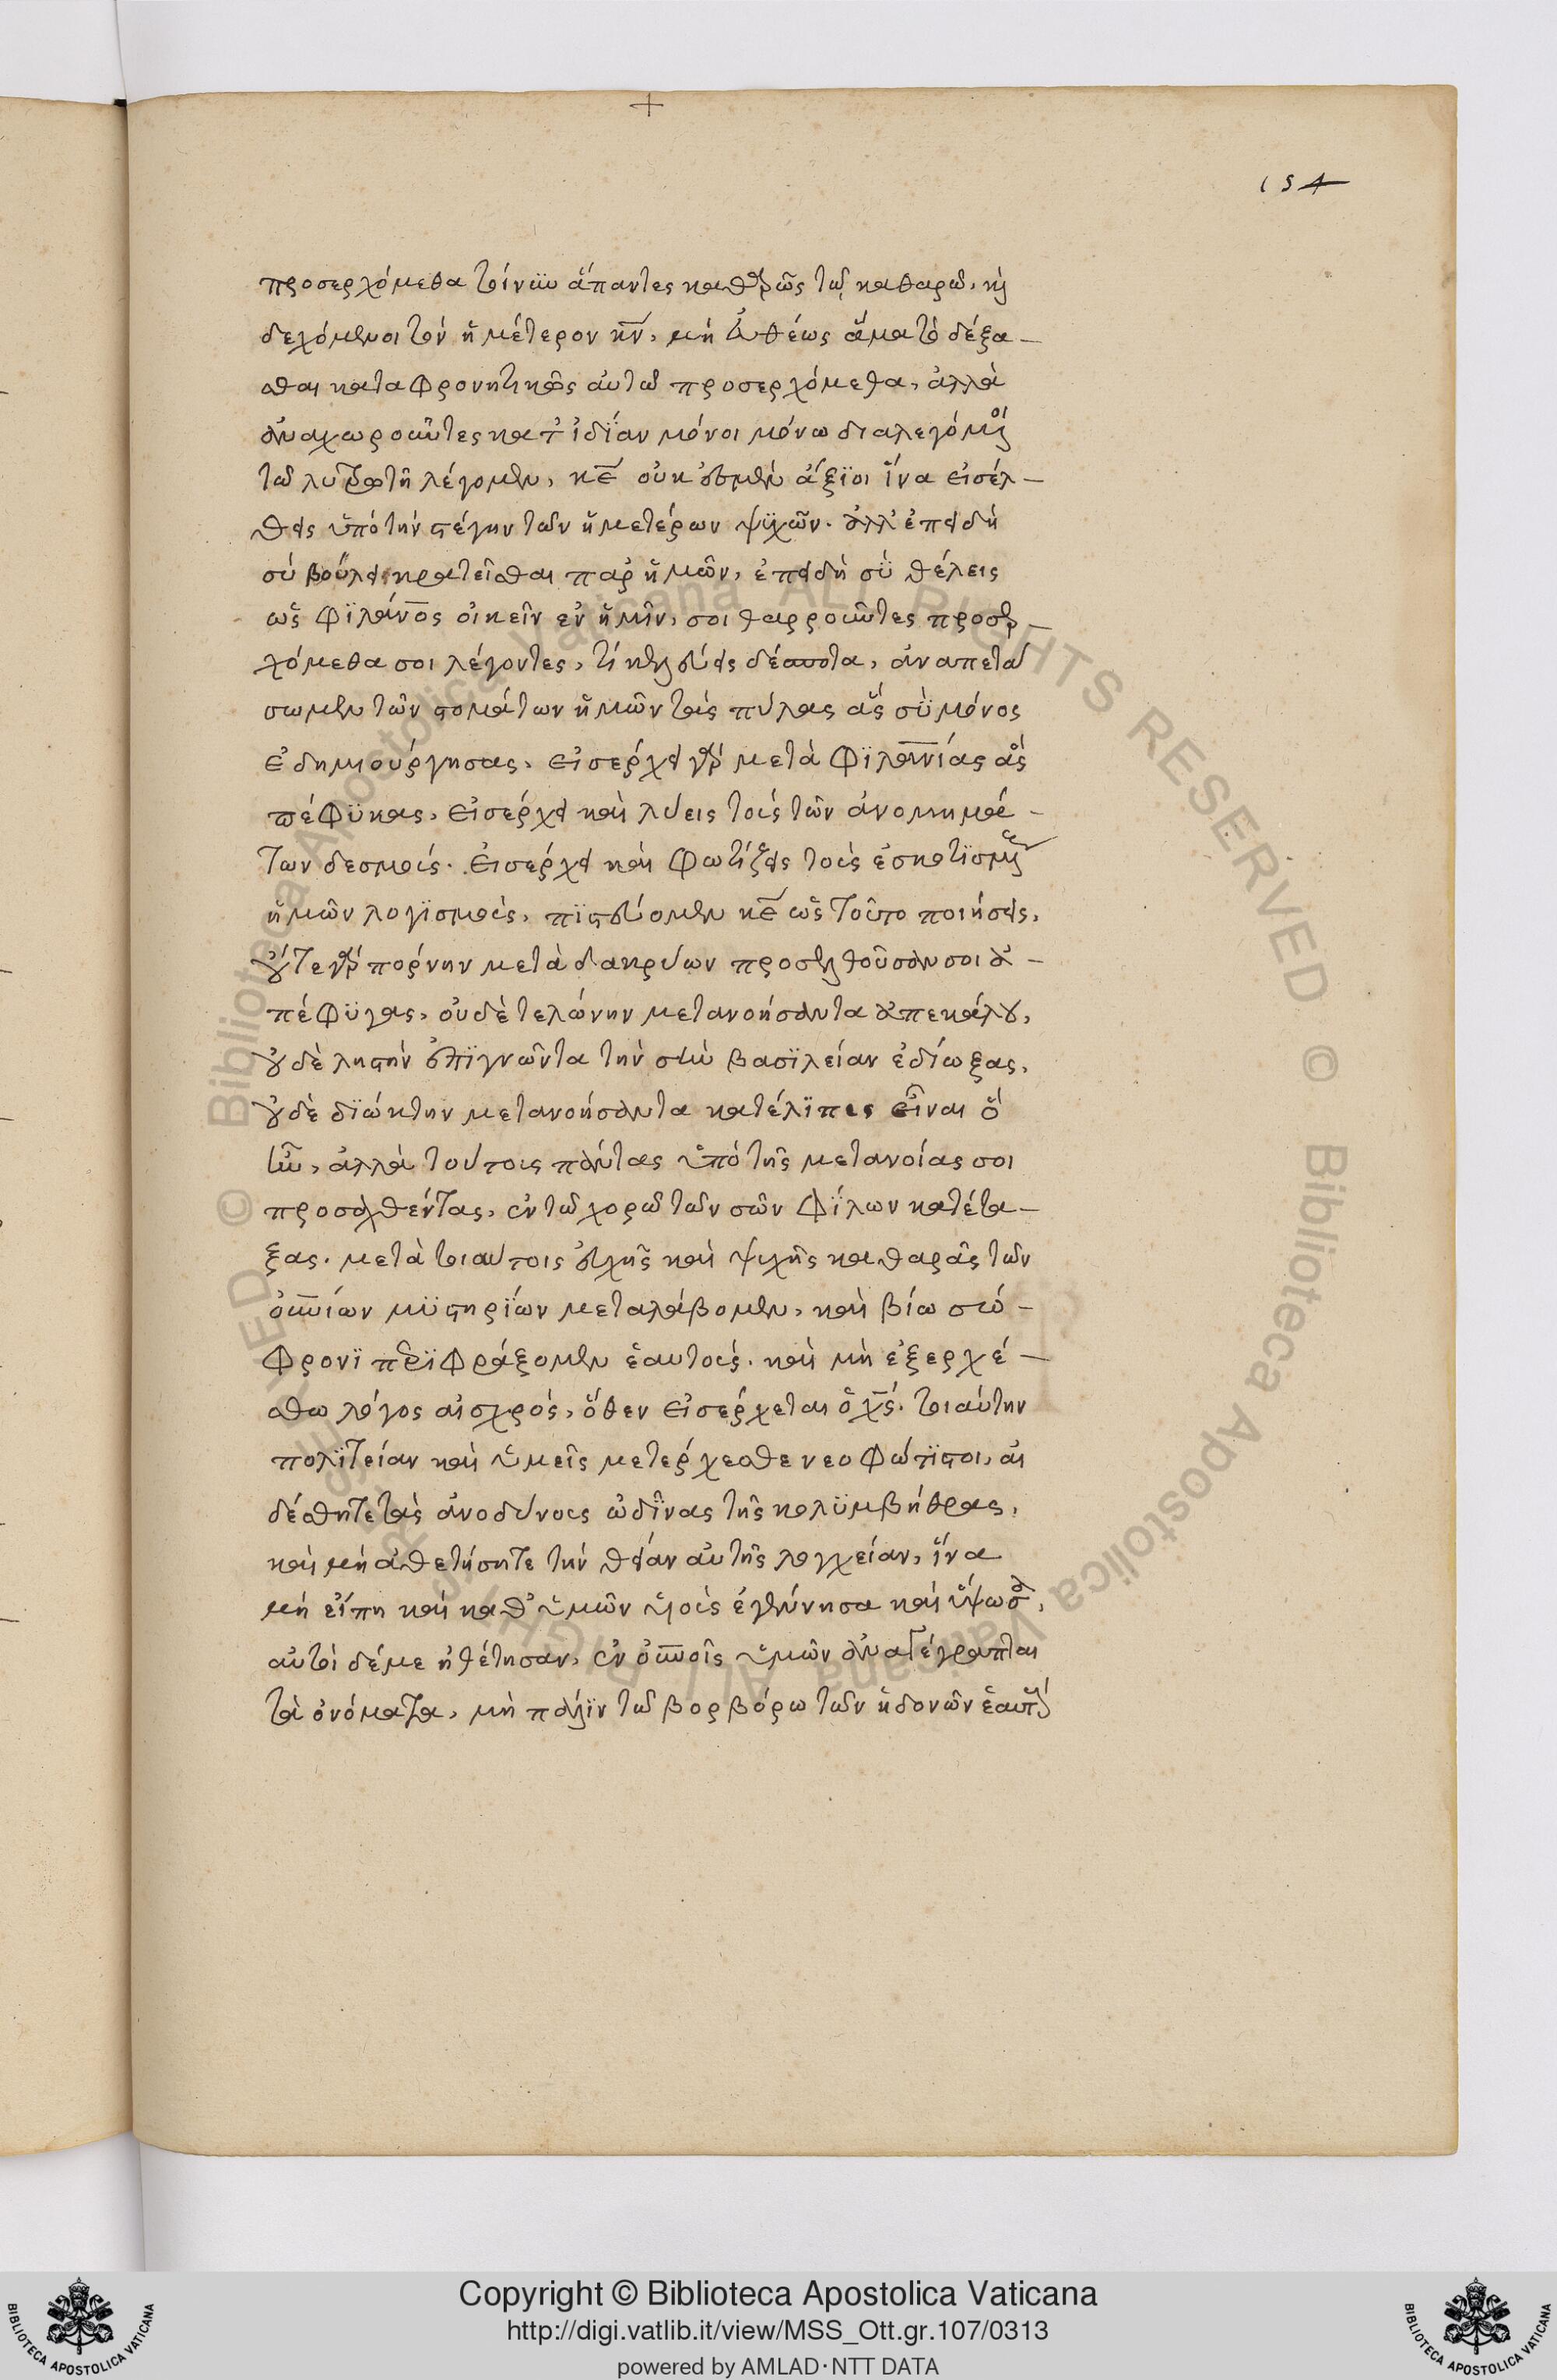 154
προσερχόμεθα τοίνυν ἅπαντες καθαρῶς τῷ καθαρῷ, κὶ
δεχόμενοι τὸν ἡμέτερον κ̅ν̅, μὴ εὐθέως ἅμα τὸ δέξα-
σθαι καταφρονητικῶς αὐτῶ προσερχόμεθα, ἀλλὰ
ἀναχωροῦντες κατ ἰδίαν μόνοι μόνω διαλεγόμενοι
τῶ λυτρωτῆ λέγομεν, κ̅ε̅ οὐκ ἐσμὲν ἄξϊοι ἵνα εἰσέλ-
θης ὑπὸ τὴν στέγην τῶν ἡμετέρων ψϋχῶν. ἀλλ' ἐπειδὴ
σὺ βούλει κρατεῖσθαι παρ ἡμῶν, ἐπειδὴ σϋ θέλεις
ὡς φϊλα̅ν̅ο̅ς οἰκεῖν ἐν ἡμῖν, σοι θαρροῦντες προσερ-
χόμεθα σοι λέγοντες, τί κελεύεις δέσποτα, ἀναπετά
σωμεν τῶν στομάτων ἡμῶν τὰς πύλας ἃς σϋ μόνος
ἐδημιούργησας, εἰσέρχη γὰρ μετὰ φϊλα̅ν̅ί̅ας ὡς
πέφϋκας, εἰσέρχη καὶ λύεις τοὺς τῶν ἀνομημά-
των δεσμούς. εἰσέρχη καὶ φωτίζεις τοὺς ἐσκοτϊσμένους
ἡμῶν λογϊσμοὺς, πϊστεύομεν κ̅ε̅ ὡς τοῦτο ποιήσεις,
οὔτε γὰρ πόρνην μετὰ δακρύων προσελθοῦσαν σοι ἀ-
πέφϋγας, οὐδὲ τελώνην μετανοήσαντα ἀπεκάλου,
οὐδὲ ληστὴν ἐπϊγνῶντα τὴν σὴν βασϊλείαν ἐδίωξας,
οὐδὲ διώκτην μετανοήσαντα κατέλϊπες εἶναι ὃ
ἦν, ἀλλὰ τούτοις πάντας ὑπὸ τῆς μετανοίας σοι
προσαχθέντας, ἐν τῶ χορῶ τῶν σῶν φίλων κατέτα-
ξας. μετὰ τοιαύτοις εὐχῆς καὶ ψυχῆς καθαρᾶς τῶν
ο̅υ̅ν̅ίων μϋστηρίων μεταλάβομεν, καὶ βίω σώ-
φρονϊ περϊφράξομεν ἑαυτούς. καὶ μὴ ἐξερχέ-
σθω λόγος αἰσχρός, ὅθεν εἰσέρχεται ὁ χ̅ς̅. τοιαύτην
πολϊτείαν καὶ ὑμεῖς μετέρχεσθε νεοφώτϊστοι, αἰ
δέσθητε τὰς ἀνοδύνους ὠδῖνας τῆς κολϋμβήθρας,
καὶ μὴ ἀθετήσητε τὴν θείαν αὐτῆς λοχείαν, ἵνα
μὴ εἴπη καὶ καθ' ὑμῶν υἱοὺς ἐγέννησα καὶ ὕψωσα,
αὐτοὶ δέ με ἠθέτησαν, ἐν ο̅υ̅ν̅οῖς ὑμῶν ἀναγέγραπται
τὰ ὀνόματα, μὴ πάλϊν τῶ βορβόρω τῶν ἡδονῶν ἑαυτοὺς
Copyright © Biblioteca Apostolica Vaticana
http://digi.vatlib.it/view/MSS_Ott.gr.107/0313
powered by AMLAD·NTT DATA